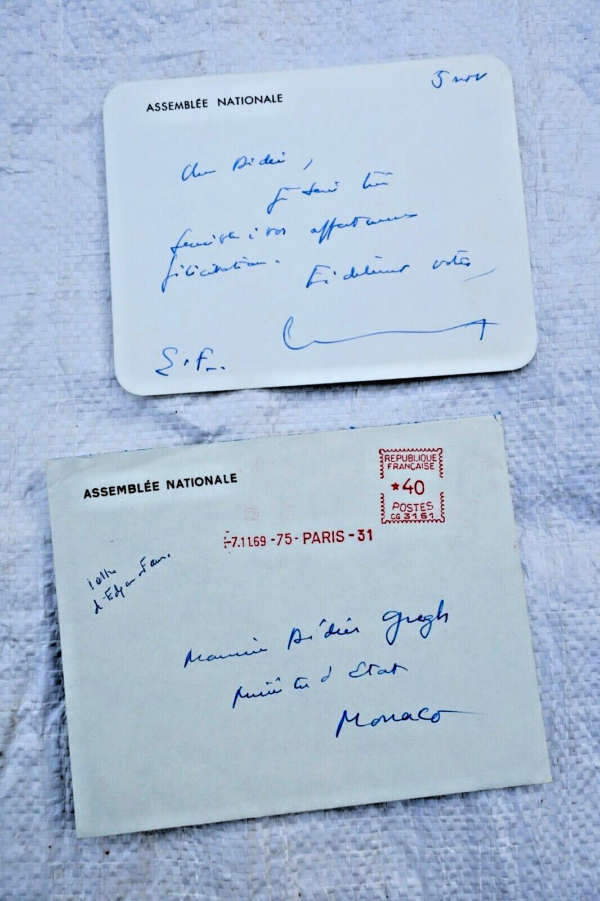 ASSEMBLÉE NATIONALE
5 nov
Cher Didier,
très
sensible à vos affectueuses
félicitations.
Fidèlement votre
E.F.
ASSEMBLÉE NATIONALE
REPUBLIQUE
FRANÇAISE
★40
POSTES
CG 3161
-7.11.69 -75- PARIS - 31
d'Edgar Faure
Monsieur Didier Gregh
Ministre d'Etat
Monaco